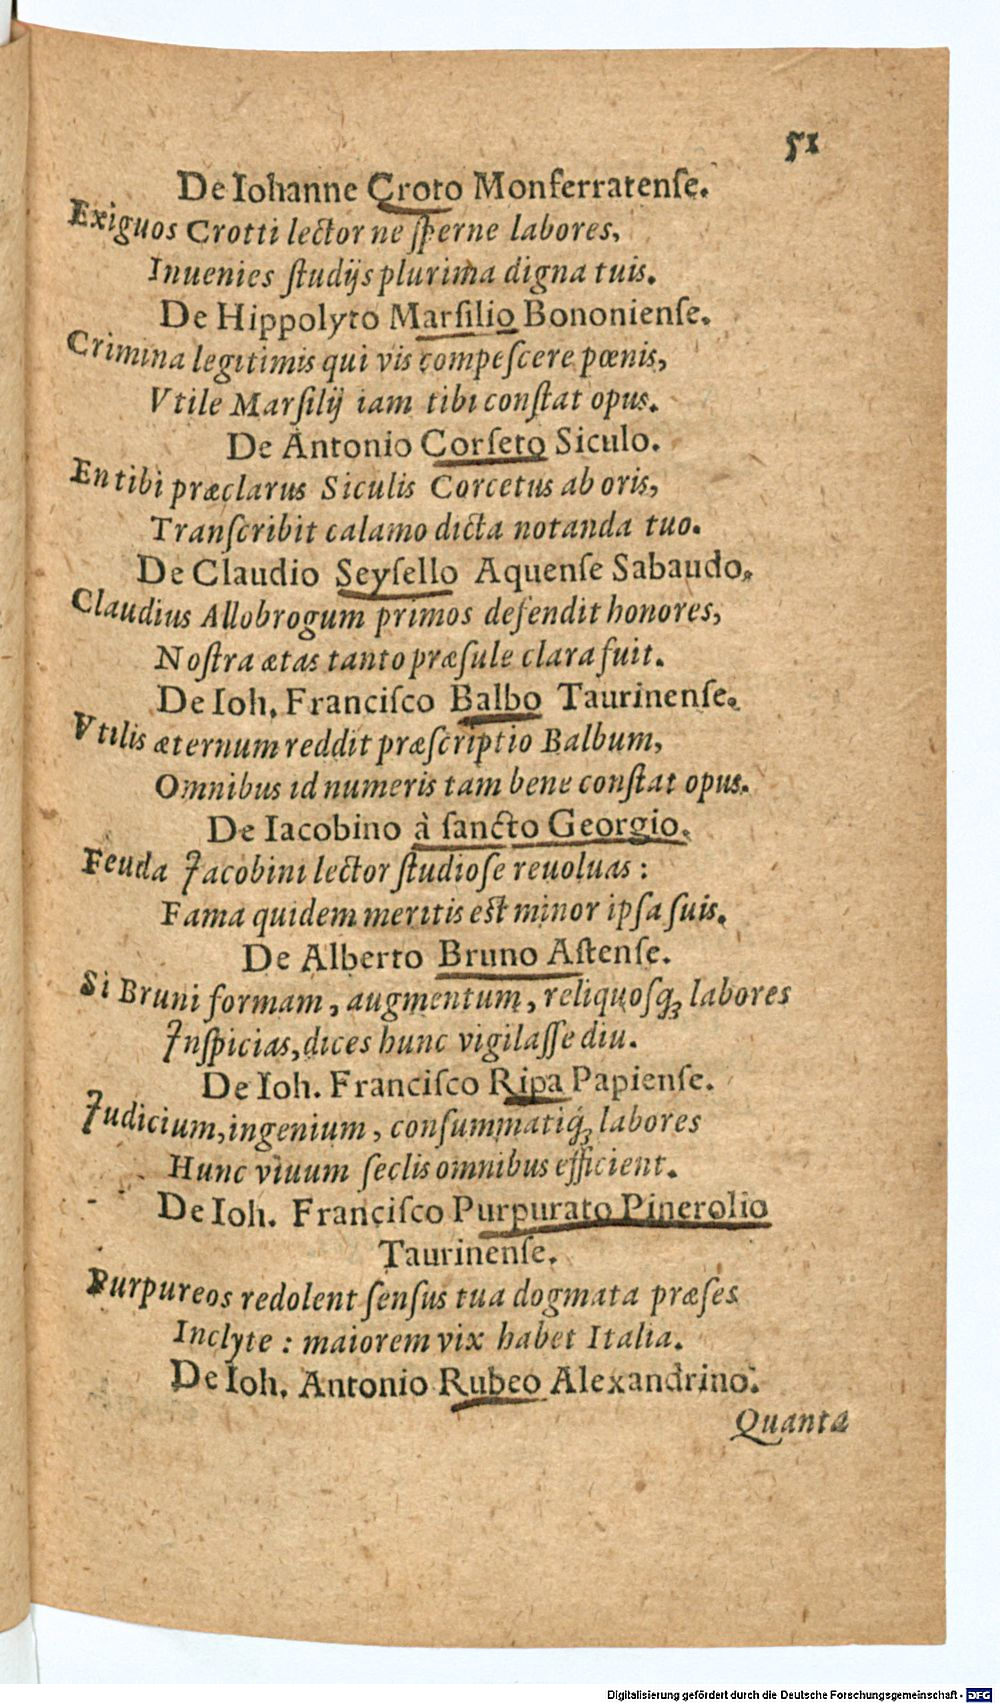 51
De Iohanne Croto Monferratenſe.
Exiguos Crotti lector ne ſperne labores,
Inuenies ſtudijs plurima digna tuis.
De Hippolyto Marſilio Bononienſe.
Crimina legitimis qui vis compeſcere pœnis,
Vtile Marſilij iam tibi conſtat opus.
De Antonio Corſeto Siculo.
En tibi præclarus Siculis Corcetus ab oris,
Tranſcribit calamo dicta notanda tuo.
De Claudio Seyſello Aquenſe Sabaudo.
Claudius Allobrogum primos defendit honores,
Noſtra ætas tanto præſule clara fuit.
De Ioh. Franciſco Balbo Taurinenſe.
Vtilis æternum reddit præſcriptio Balbum,
Omnibus id numeris tam bene conſtat opus.
De Iacobino à ſancto Georgio.
Feuda Jacobini lector ſtudioſe reuoluas:
Fama quidem meritis eſt minor ipſa ſuis.
De Alberto Bruno Aſtenſe.
Si Bruni formam, augmentum, reliquoſq; labores
Jnſpicias, dices hunc vigilaſſe diu.
De Ioh. Franciſco Ripa Papienſe.
Judicium, ingenium, conſummatiq́; labores
Hunc viuum ſeclis omnibus efficient.
De Ioh. Franciſco Purpurato Pinerolio
Taurinenſe.
Purpureos redolent ſenſus tua dogmata præſes
Inclyte: maiorem vix habet Italia.
De Ioh. Antonio Rubeo Alexandrino.
Quanta
Digitalisierung gefördert durch die Deutsche Forschungsgemeinschaft - DFG